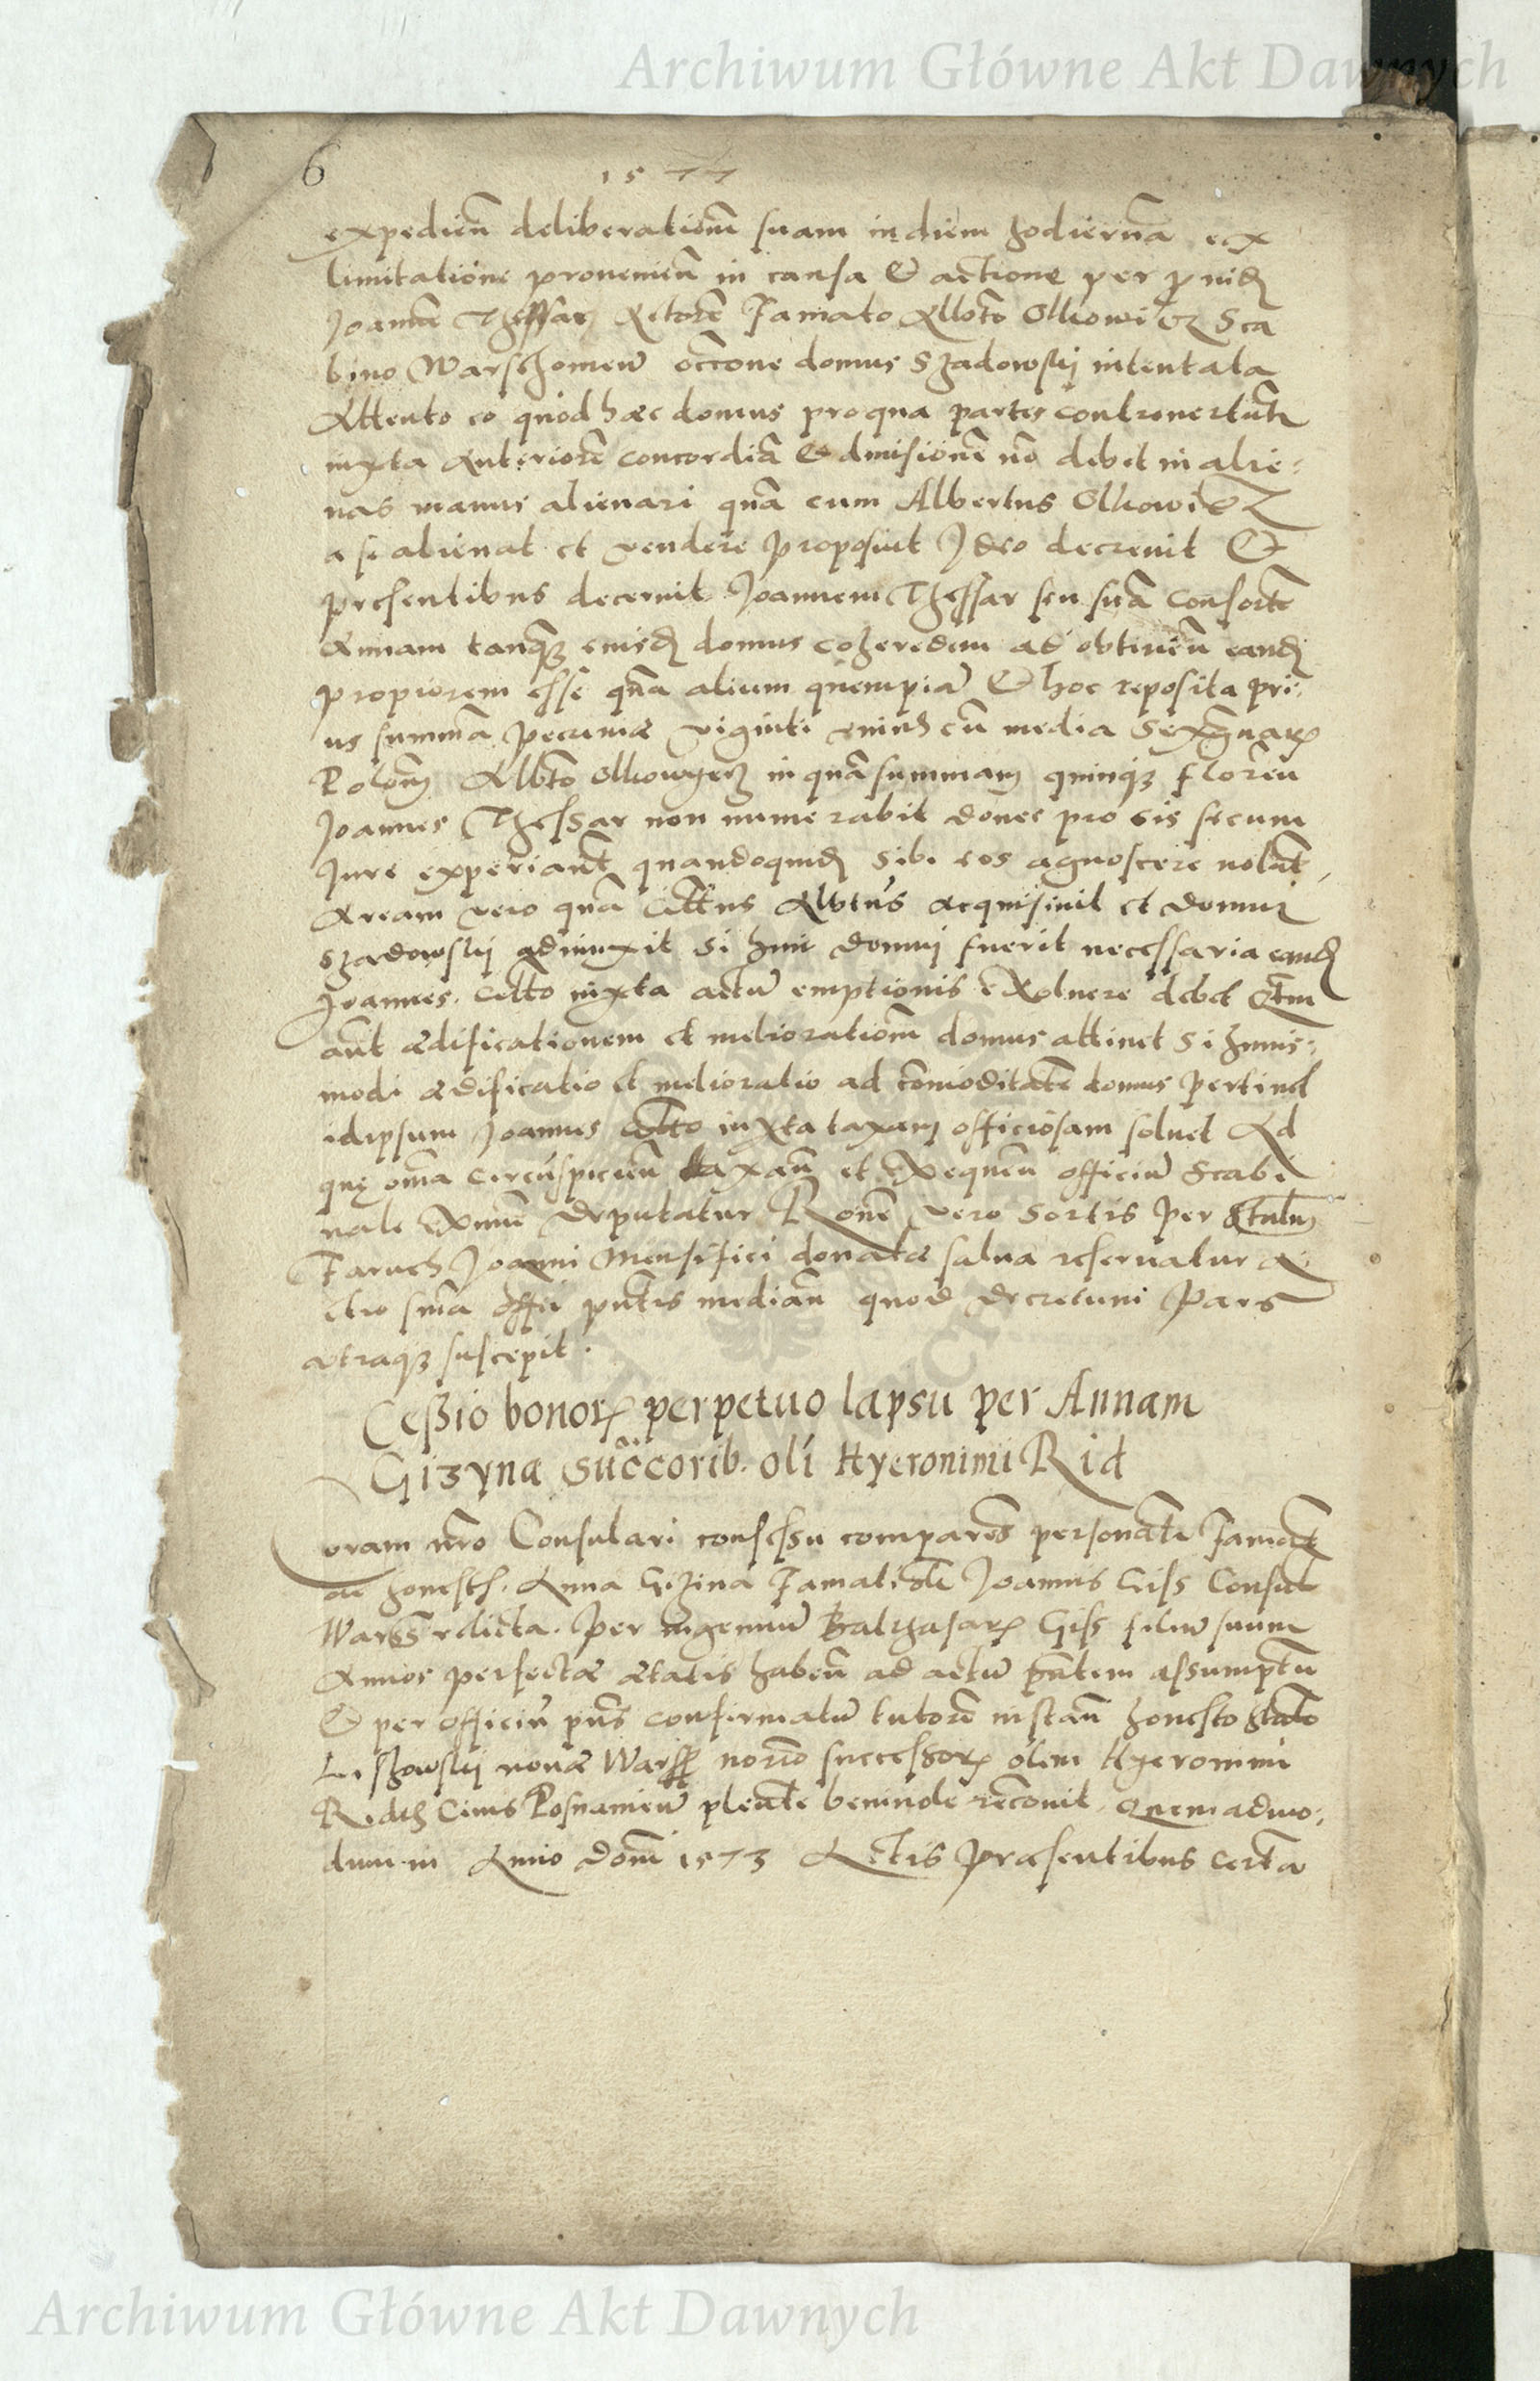 Archiwum Główne Akt Dawnych
6
1577
expedien deliberationem suam in diem hodierna ex
limitatione provenien in causa & actione per
Joannem Thessar Actorem Famato Alberto Olkowicz Sca
bino Warschowien occone domus Szadowskij intentata
Attento eo quod haec domus pro qua partes controvertunt
iuxta anteriorem concordia & divisionem no debet in alie:
nas manus alienari qua cum Albertus Olkowicz
a se alienat et vendere proposuit Ideo decrevit Et
presentibus decernit Joannem Thessar seu sua Consorte
Annam tanq eiusd domus coheredem ad obtinen eand
propiorem esse qua alium quempia Et hoc reposita pri:
us summa pecuniae viginti cu media sexagenar
Polon Alberto Olkowicz in qua summam quinq floren
Joannes Thessar non numerabit donec pro eis secum
Jure experiant quandoquid sibi eos agnoscere nolunt
Aream vero qua Albertus acquisivit et domui
Szadowskij adiunxit Si huic domui fuerit necessaria eand
Joannes iuxta actu emptionis exolvere debet
aut aedificationem et meliorationem domus attinet Si huius:
modi aedificatio et melioratio ad comoditate domus pertinet
idipsum Joannes iuxta taxam officiosam solvet Ad
que omnia circuspicien taxan et exequen officiu Scabi
nale deputatur Ronem vero Sortis per
Faruch Joanni Mensifici donatae salva reservatur
ctio median quod decretum Pars
utraq suscepit.
Cessio bonor perpetuo lapsu per Annam
Gizyna succorib. oli Hyeronimi Rid
Coram nro Consulari consessu comparens personaliter Famat
ac honesta Anna Gizina Famati olim Joannis Giss Consul
Wars relicta. Per ingenuu Balthasar Giss filiu suum
Annos perfectae aetatis haben ad actu assumptu
Et per officiu pns confirmatu tutore instan honesto
novae Wars successor olim Hyeronimi
Ridth Civis Posnanien benivole Quemadmo:
dum in Anno Dom 1573 Actis praesentibus certa
Archiwum Główne Akt Dawnych